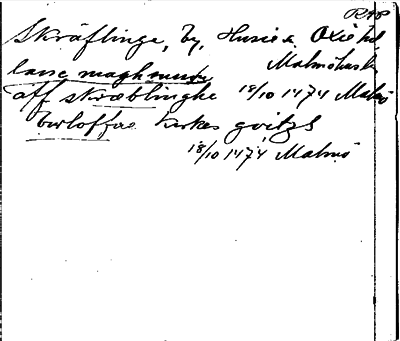 RAP
Skräflinge, by, Husie s. Oxie hd
Malmöhus län
lasse maghnussø
aff skræblinghe 18/10 1474 Malmö
Oerloffue kirkes gotzs
18/10 1474 Malmö